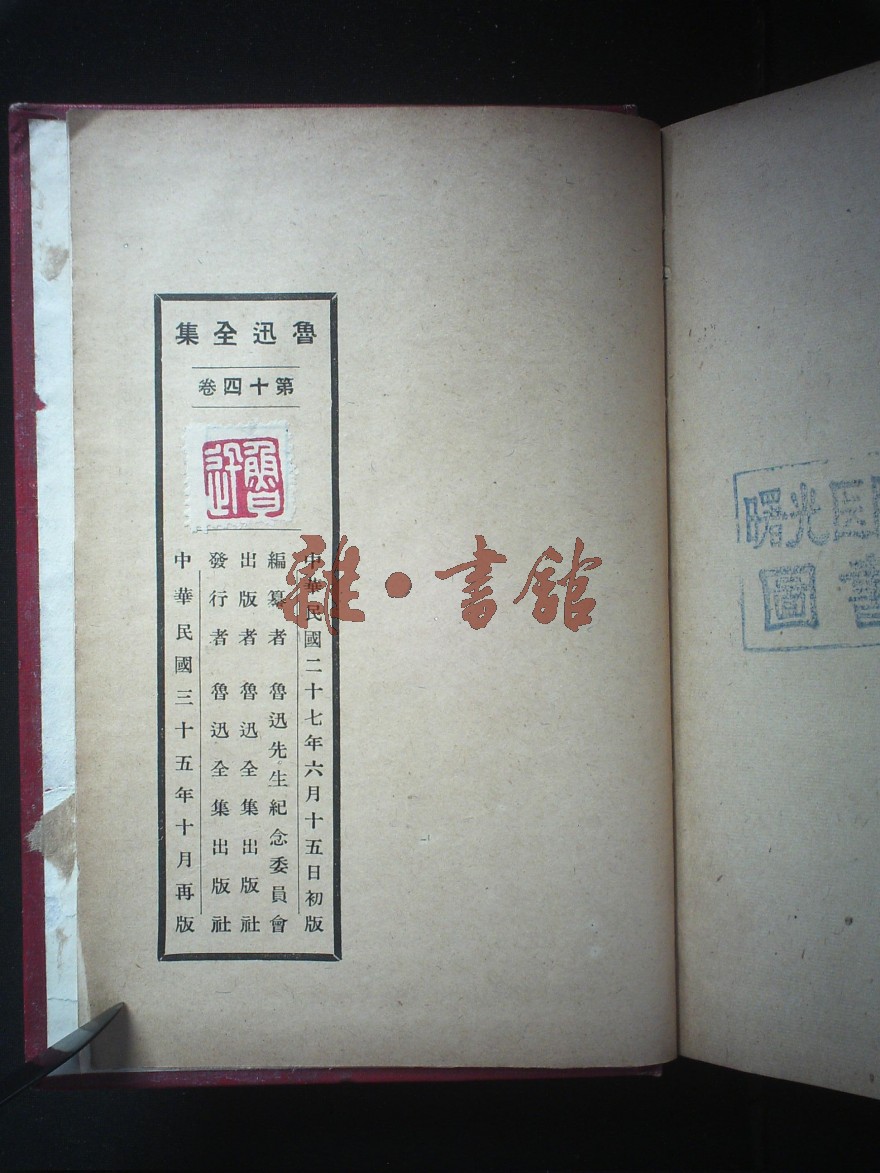 魯迅全集
第十四卷
魯迅
中華民國二十七年六月十五日初版
編纂者 魯迅先生紀念委員會
出版者 魯迅全集出版社
發行者 魯迅全集出版社
中華民國三十五年十月再版
雜·書館
曙光民
圖書